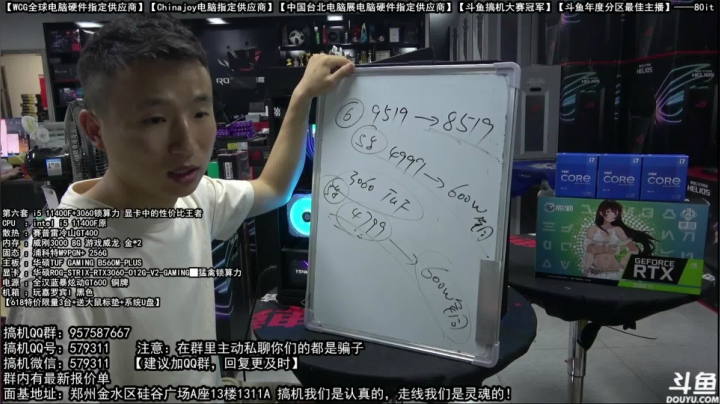 【WCG全球电脑硬件指定供应商】【Chinajoy电脑指定供应商】【中国台北电脑展电脑硬件指定供应商】【斗鱼搞机大赛冠军】【斗鱼年度分区最佳主播】——80it
⑥ 9519→8519
4999→600W
3060 TUF
4799→600W
第六套 i5 11400F+3060锁算力 显卡中的性价比王者
CPU : intel i5 11400F原
散热 : 赛普雷冷山GT400
内存 : 威刚3000 8G 游戏威龙 金*2
固态 : 浦科特M9PGN+ 256G
主板 : 华硕TUF GAMING B560M-PLUS
显卡 : 华硕ROG-STRIX-RTX3060-O12G-V2-GAMING 猛禽锁算力
电源 : 全汉蓝暴炫动GT600 铜牌
机箱 : 玩嘉罗宾1 黑色
【618特价限量3台+送大鼠标垫+系统U盘】
搞机QQ群：957587667
搞机QQ号：579311 注意：在群里主动私聊你们的都是骗子
搞机微信：579311 【建议加QQ群，回复更及时】
群内有最新报价单
面基地址：郑州金水区硅谷广场A座13楼1311A 搞机我们是认真的，走线我们是灵魂的！
CORE i7
CORE i7
CORE i7
GEFORCE
RTX
HELIOS
HELIOS
斗鱼
DOUYU.COM